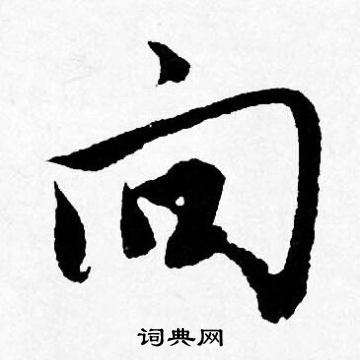 向
词典网